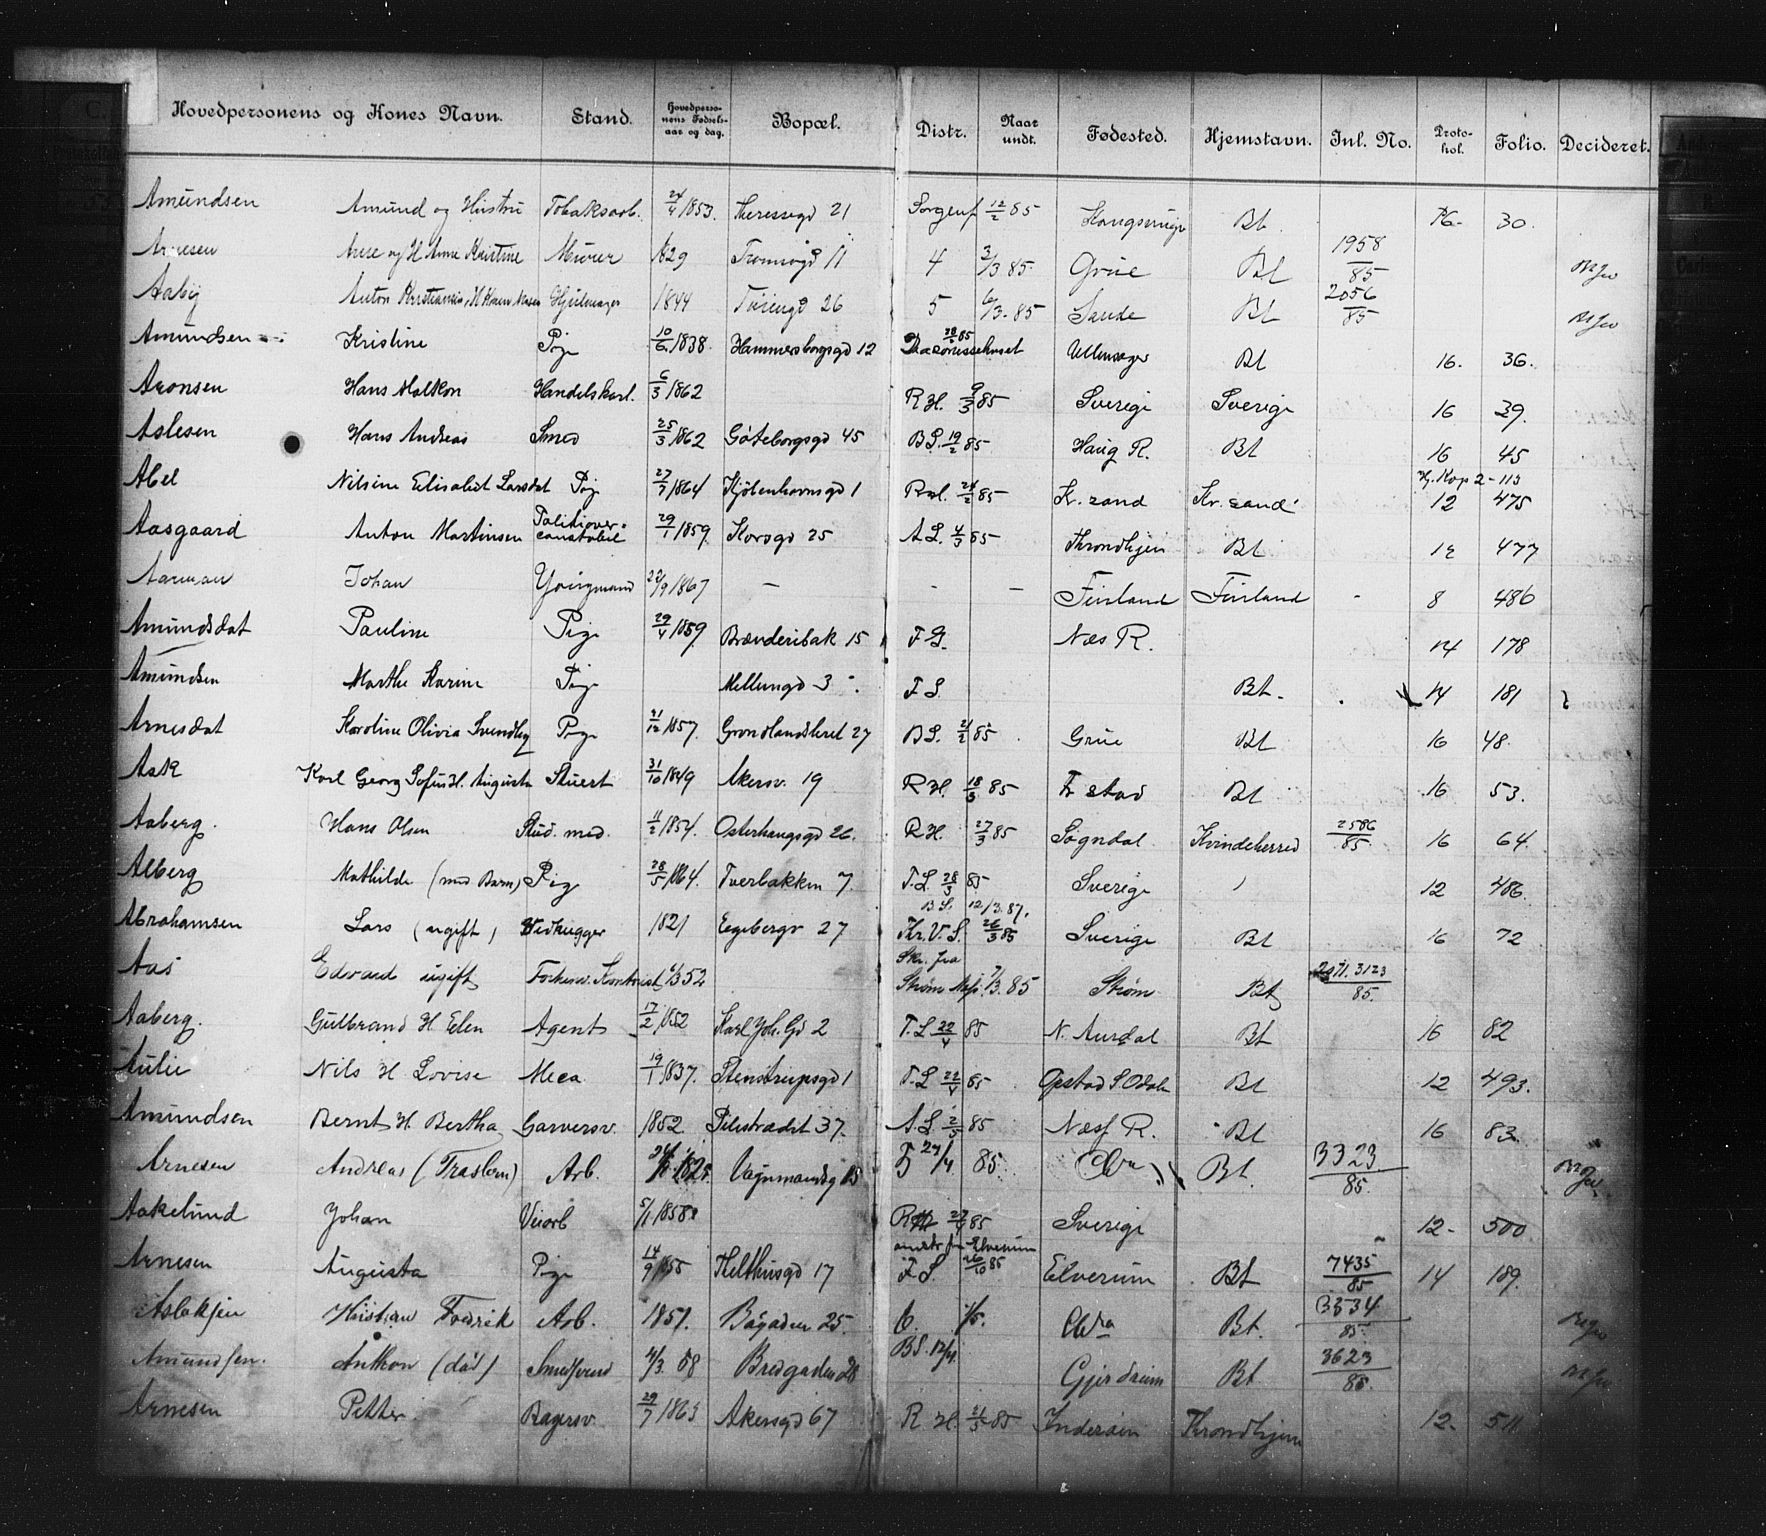 Hovedpersonens og Kones Navn. Stand. Hovedperso-nens Fødsels-aar og dag. Bopæl. Distr. Naar undt. Fødested. Hjemstavn. Inl. No. Proto-kol. Folio. Decideret.
Amundsen Amund og Hustru Tobaksarb. 24/4 1853. Theresesgd 21 Sorgenf 12/2 85 Kongsvinger Bt. 16- 30.
Arnesen Arne og H Anne Kristine Murer 1829 Tromsøgd 11 4 2/3 85. Grue Bt 1958/85
Aaby Anton Kristiansen, H Karen Hjulmager 1844 Tøiengd 26 5 6/3. 85 Sande Bt 2056/85
Amundsen Kristine Pige 10/6 1838. Hammersborgsgd 12 28/2 85 Ullensager Bt 16. 36.
Aronsen Hans Malkon Handelskarl. 6/3 1862 R.H. 9/3 85 Sverige Sverige 16 39.
Aslesen Hans Andreas Smed 25/3 1862 Göteborgsgd 45 B.S. 19/2 85 Haug R. Bt 16 45
Abel Nilsine Elisabet Larsdat Pige 27/7 1864 Kjöbenhavnsgd 1 24/2 85 Kr. sand Kr. sand Kop 2-113 12 475
Aasgaard Anton Martinsen Politiover-constabel 29/1 1859. Korsgd 25 A.L. 4/3 85 Throndhjem Bt 12 477
Aarman Johan Yoingmand 22/9 1867 — - — Finland Finland - 8 486
Amundsdat Pauline Pige 29/4 1859. Brænderibak 15 F G. Næs R. 14 178
Amundsen Marthe Karine Pige Mellumgd 3 F S. Bt. 14 181
Arnesdat Karoline Olivia Svendby Pige 31/12 1857. Grønlandsleret 27 B S. 21/2 85 Grue Bt 16 48.
Ask Karl Georg Sofus H. Augusta Stuert 31/10 1849 Akersv. 19 R H. 18/3 85 Fr stad Bt 16 53.
Aaberg. Hans Olsen Stud. med. 11/2 1854. Osterhausgd 26. R H. 27/3 85 Sogndal Kvindeherred 2586/85 16 64.
Alberg Mathilde (med Barn) Pige 28/5 1864. Tverbakken 7 T.L. 28/3 85 Sverige 12 486
B S. 12/3.87.
Abrahamsen Lars (ugift) Vedhugger 1821 Egebergv 27 Kr.V.S. 26/3 85 Sverige Bt 16 72
Aas Edvard ugift Kontorist 1852 Skr. fra Strøm 7/3.85 Strøm Bt 3123/85.
Aaberg. Gulbrand H Elen Agent 17/2 1852 Karl Joh. Gd 2 T.L 22/4 85 N. Aurdal Bt 16 82
Aulie Nils H Lovise Meca 19/1 1837. Stenstrupsgd 1 T.L 22/4 85 Opstad S Odalen Bt 12 493.
Amundsen Bernt H. Bertha Garversv. 1852 Pilestrædet 37. A.L. 2/5 85 Næs R. Bt 16 83.
Arnesen Andreas Arb. Vognmandsg 15 5 27/4 85. Bt. 3323/85.
Aakelund Johan Veiarb 5/11 1858 27/4 85 Sverige 12- 500.
Arnesen Augusta Pige 14/9 1855 Kelthusgd 17 andr fra Elverum F S. 26/10 85 Elverum Bt 7435/85 14 189.
Aslaksen Kristian Fredrik Arb. 1851. Bøgaden 25. 6. 1/5. Bt. 3534/85.
Amundsen. Anthon (død) Smedsvend 4/3 58 Bredgaden 28 BS. 12/4 Gjerdrum Bt. 3623/85
Arnesen Petter Bagersv. 29/7 1863 Akersgd 67 R H. 21/5 85 Inderøen Throndhjem 12- 511